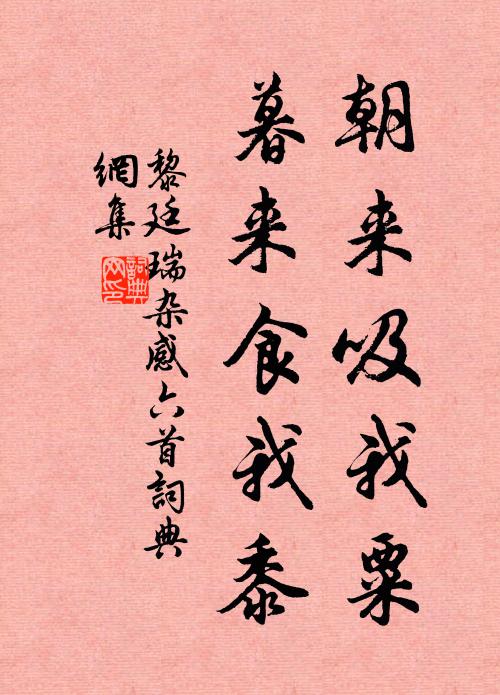 朝来吸我粟
暮来食我黍
黎廷瑞杂感六首詞典
網集
詞典网印